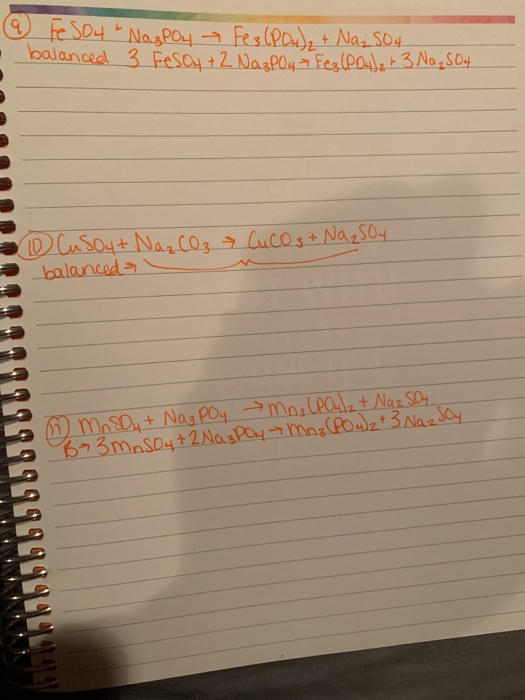 9 FeSO4 + Na3PO4 → Fe3(PO4)2 + Na2SO4
balanced 3 FeSO4 + 2 Na3PO4 → Fe3(PO4)2 + 3 Na2SO4
10 CuSO4 + Na2CO3 → CuCO3 + Na2SO4
balanced →
11 MnSO4 + Na3PO4 → Mn3(PO4)2 + Na2SO4
B → 3 MnSO4 + 2 Na3PO4 → Mn3(PO4)2 + 3 Na2SO4